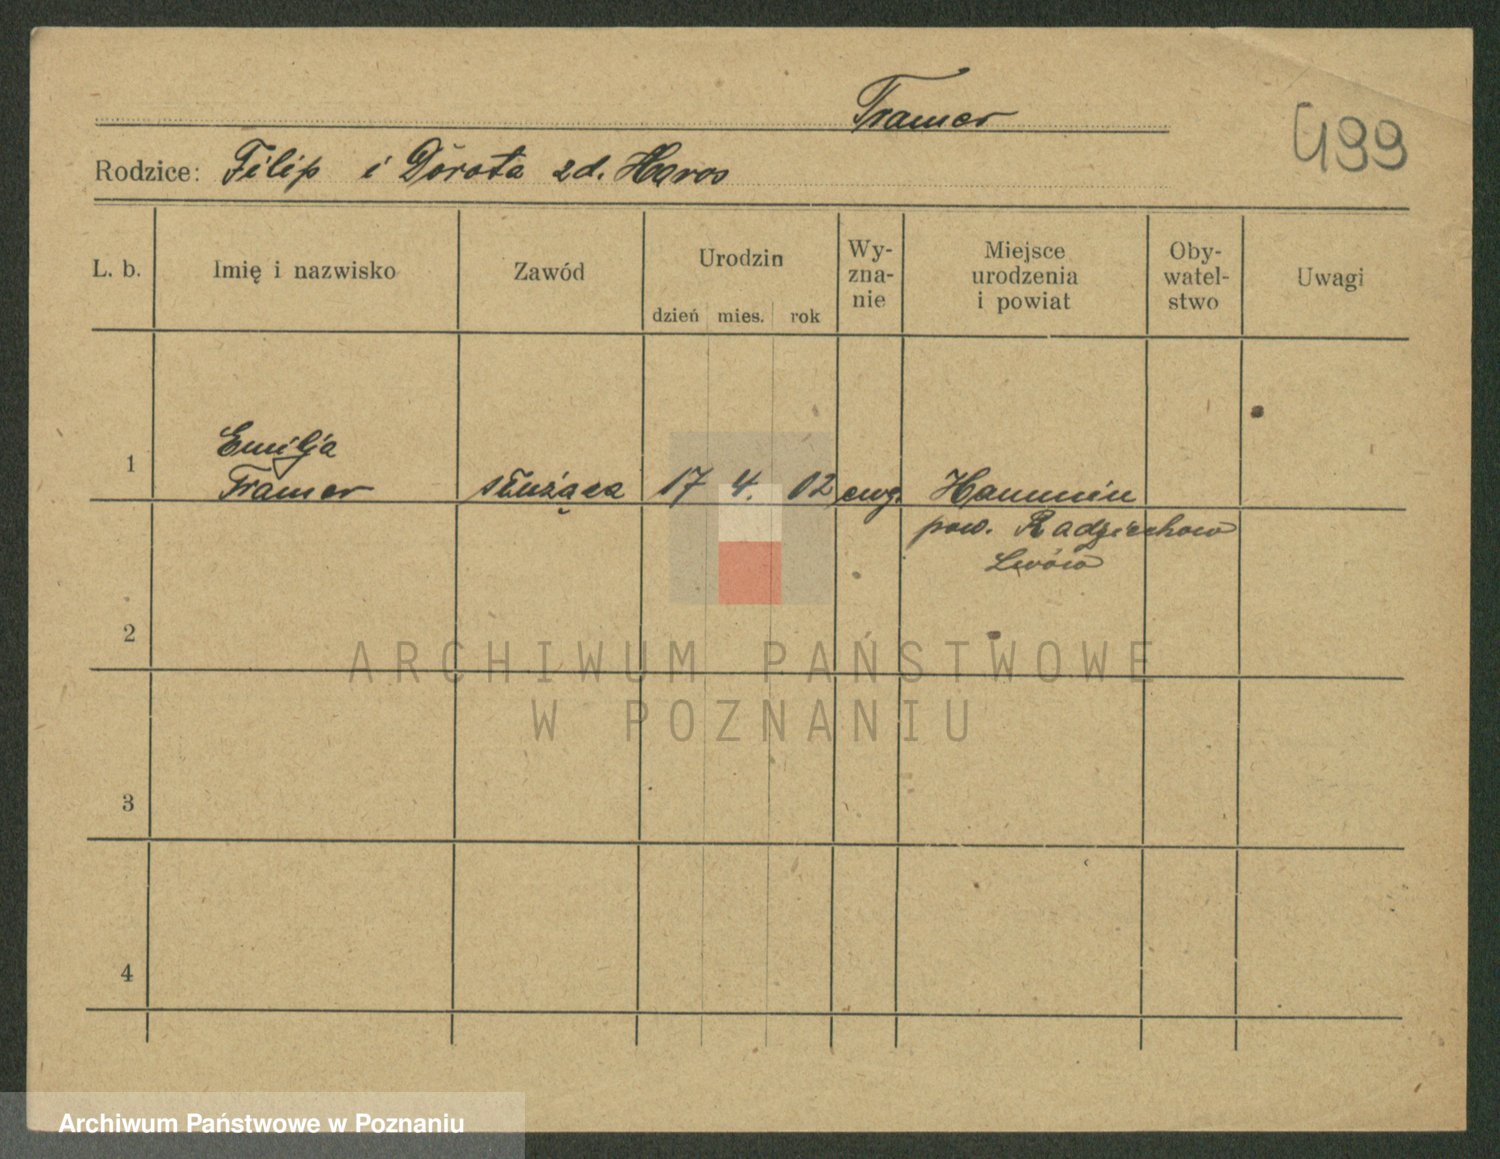 Tramer
499
Rodzice: Filip i Dorota zd. Haros
L. b.
Imię i nazwisko
Zawód
Urodzin
dzień mies. rok
Wy-
zna-
nie
Miejsce
urodzenia
i powiat
Oby-
watel-
stwo
Uwagi
1
Emilja
Tramer
służąca
17 4. 02
ewg.
Hanunin
pow. Radziechow
Lwów
2
3
4
ARCHIWUM PAŃSTWOWE
W POZNANIU
Archiwum Państwowe w Poznaniu